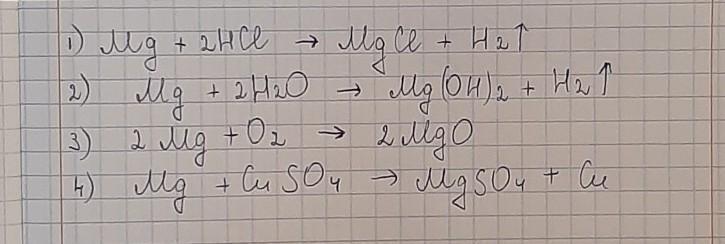 1) Mg + 2HCl → MgCl + H2↑
2) Mg + 2H2O → Mg(OH)2 + H2↑
3) 2Mg + O2 → 2MgO
4) Mg + CuSO4 → MgSO4 + Cu